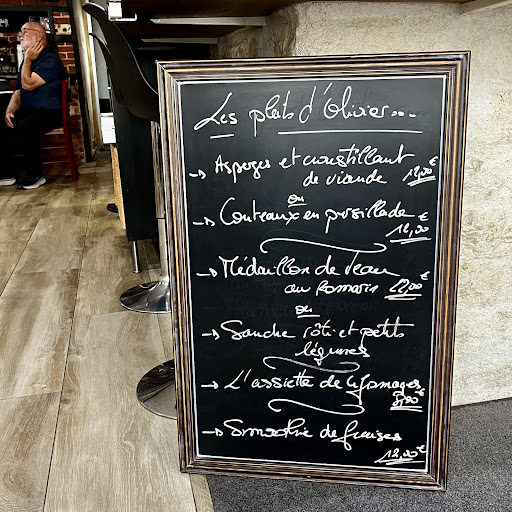 Les plats d'Olivier...
→ Asperges et croustillant
de viande 12,00 €
ou
→ Couteaux en persillade
12,00 €
→ Médaillon de Veau
au Romarin 22,00 €
ou
→ Sandre rôti et petits
légumes
→ L'assiette de fromages
€
→ Smoothie de fraises
12,00 €